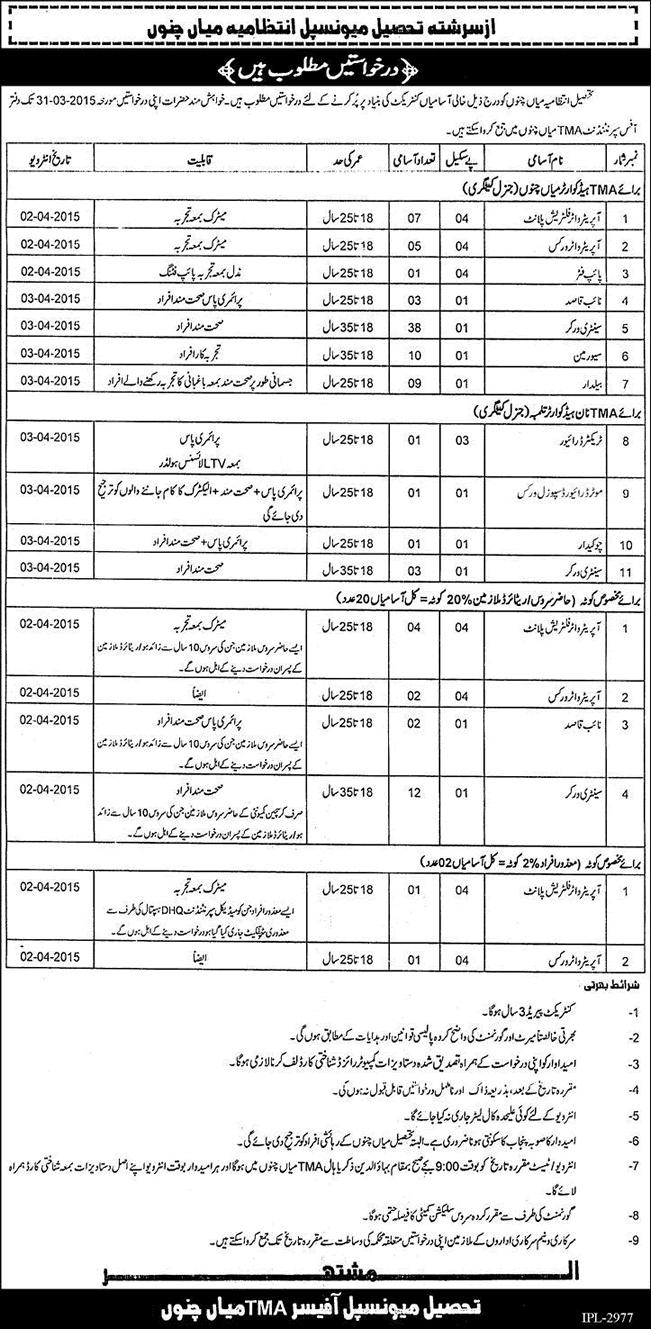 ازسرشتہ تحصیل میونسپل انتظامیہ میاں چنوں
درخواستیں مطلوب ہیں
تحصیل انتظامیہ میاں چنوں کو درج ذیل خالی آسامیاں کنٹریکٹ کی بنیاد پر پُر کرنے کے لئے درخواستیں مطلوب ہیں۔ خواہش مند حضرات اپنی درخواستیں مورخہ 31-03-2015 تک دفتر
آفس سپرنٹنڈنٹ TMA میاں چنوں میں جمع کروا سکتے ہیں۔
نمبر شمار نام آسامی پے سکیل تعداد آسامی عمر کی حد قابلیت تاریخ انٹرویو
برائے TMA ہیڈ کوارٹر میاں چنوں (جنرل کیٹگری)
1 آپریٹر واٹر فلٹریشن پلانٹ 04 07 18 تا 25 سال میٹرک بمعہ تجربہ 02-04-2015
2 آپریٹر واٹر ورکس 04 05 18 تا 25 سال میٹرک بمعہ تجربہ 02-04-2015
3 پائپ فٹر 04 01 18 تا 25 سال مڈل بمعہ تجربہ پائپ فٹنگ 02-04-2015
4 نائب قاصد 01 03 18 تا 25 سال پرائمری پاس صحت مند افراد 03-04-2015
5 سینٹری ورکر 01 38 18 تا 35 سال صحت مند افراد 03-04-2015
6 سیور مین 01 10 18 تا 35 سال تجربہ کار افراد 03-04-2015
7 بیلدار 01 09 18 تا 25 سال جسمانی طور پر صحت مند بمعہ باغبانی کا تجربہ رکھنے والے افراد 03-04-2015
برائے TMA نان ہیڈ کوارٹر تلمبہ (جنرل کیٹگری)
8 ٹریکٹر ڈرائیور 03 01 18 تا 25 سال پرائمری پاس 03-04-2015
بمعہ LTV لائسنس ہولڈر
9 موٹر ڈرائیور ڈسپوزل ورکس 01 01 18 تا 25 سال پرائمری پاس + صحت مند + الیکٹرک کا کام جاننے والوں کو ترجیح 03-04-2015
دی جائے گی
10 چوکیدار 01 01 18 تا 25 سال پرائمری پاس + صحت مند افراد 03-04-2015
11 سینٹری ورکر 01 03 18 تا 35 سال صحت مند افراد 03-04-2015
برائے مخصوص کوٹہ (حاضر سروس / ریٹائرڈ ملازمین 20% کوٹہ = کل آسامیاں 20 عدد)
1 آپریٹر واٹر فلٹریشن پلانٹ 04 04 18 تا 25 سال میٹرک بمعہ تجربہ 02-04-2015
ایسے حاضر سروس ملازمین جن کی سروس 10 سال سے زائد ہو / ریٹائرڈ ملازمین
کے پسران درخواست دینے کے اہل ہوں گے۔
2 آپریٹر واٹر ورکس 04 02 18 تا 25 سال ایضاً 02-04-2015
3 نائب قاصد 01 02 18 تا 25 سال پرائمری پاس صحت مند افراد 02-04-2015
ایسے حاضر سروس ملازمین جن کی سروس 10 سال سے زائد ہو / ریٹائرڈ ملازمین
کے پسران درخواست دینے کے اہل ہوں گے۔
4 سینٹری ورکر 01 12 18 تا 35 سال صحت مند افراد 02-04-2015
صرف کرسچین کمیونٹی کے حاضر سروس ملازمین جن کی سروس 10 سال سے زائد
ہو / ریٹائرڈ ملازمین کے پسران درخواست دینے کے اہل ہوں گے۔
برائے مخصوص کوٹہ (معذور افراد 2% کوٹہ = کل آسامیاں 02 عدد)
1 آپریٹر واٹر فلٹریشن پلانٹ 04 01 18 تا 25 سال میٹرک بمعہ تجربہ 02-04-2015
ایسے معذور افراد جن کو میڈیکل سپرنٹنڈنٹ DHQ ہسپتال کی طرف سے
معذوری سرٹیفکیٹ جاری کیا گیا ہو درخواست دینے کے اہل ہوں گے۔
2 آپریٹر واٹر ورکس 04 01 18 تا 25 سال ایضاً 02-04-2015
شرائط بھرتی
1- کنٹریکٹ پیریڈ 3 سال ہوگا۔
2- بھرتی خالصتاً میرٹ اور گورنمنٹ کی واضح کردہ پالیسی قوانین اور ہدایات کے مطابق ہوں گی۔
3- امیدوار کو اپنی درخواست کے ہمراہ تصدیق شدہ دستاویزات کمپیوٹرائزڈ شناختی کارڈ لف کرنا لازمی ہوگا۔
4- مقررہ تاریخ کے بعد، بذریعہ ڈاک اور نامکمل درخواستیں قابل قبول نہ ہوں گی۔
5- انٹرویو کے لئے کوئی علیحدہ کال لیٹر جاری نہ کیا جائے گا۔
6- امیدوار کا صوبہ پنجاب کا سکونتی ہونا ضروری ہے۔ البتہ تحصیل میاں چنوں کے رہائشی افراد کو ترجیح دی جائے گی۔
7- انٹرویو / ٹیسٹ مقررہ تاریخ کو بوقت 9:00 بجے صبح بمقام بہاؤالدین ذکریا ہال TMA میاں چنوں میں ہوگا اور ہر امیدوار بوقت انٹرویو اپنے اصل دستاویزات بمعہ شناختی کارڈ ہمراہ
لائے گا۔
8- گورنمنٹ کی طرف سے مقرر کردہ سروس سلیکشن کمیٹی کا فیصلہ حتمی ہوگا۔
9- سرکاری و نیم سرکاری اداروں کے ملازمین اپنی درخواستیں متعلقہ محکمہ کی وساطت سے مقررہ تاریخ تک جمع کروا سکتے ہیں۔
المشتہر
تحصیل میونسپل آفیسر TMA میاں چنوں
IPL-2977